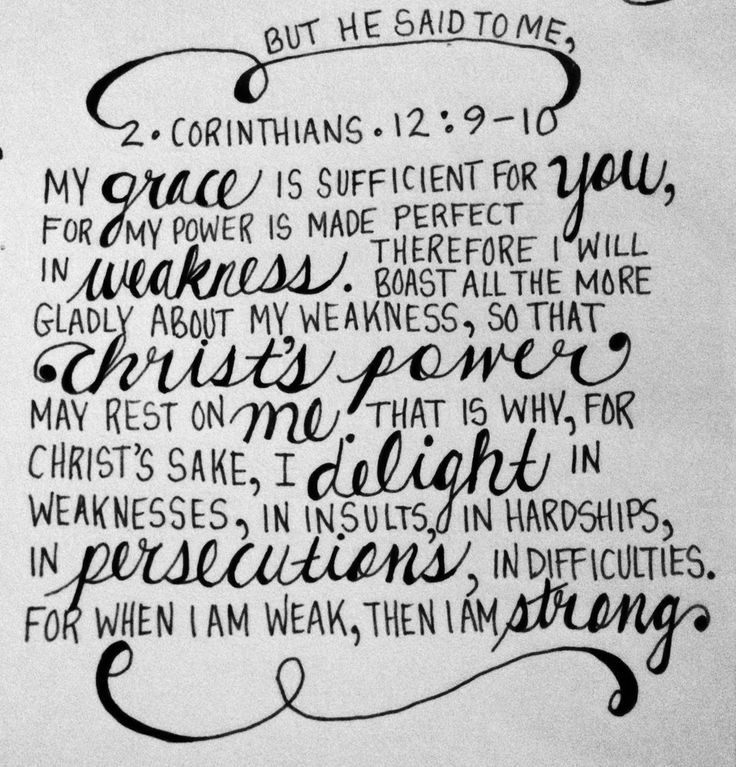 BUT HE SAID TO ME,
2 • CORINTHIANS • 12:9-10
MY grace IS SUFFICIENT FOR you,
FOR MY POWER IS MADE PERFECT
IN weakness. THEREFORE I WILL
BOAST ALL THE MORE
GLADLY ABOUT MY WEAKNESS, SO THAT
christ's power
MAY REST ON me. THAT IS WHY, FOR
CHRIST'S SAKE, I delight IN
WEAKNESSES, IN INSULTS, IN HARDSHIPS,
IN persecutions, IN DIFFICULTIES.
FOR WHEN I AM WEAK, THEN I AM strong